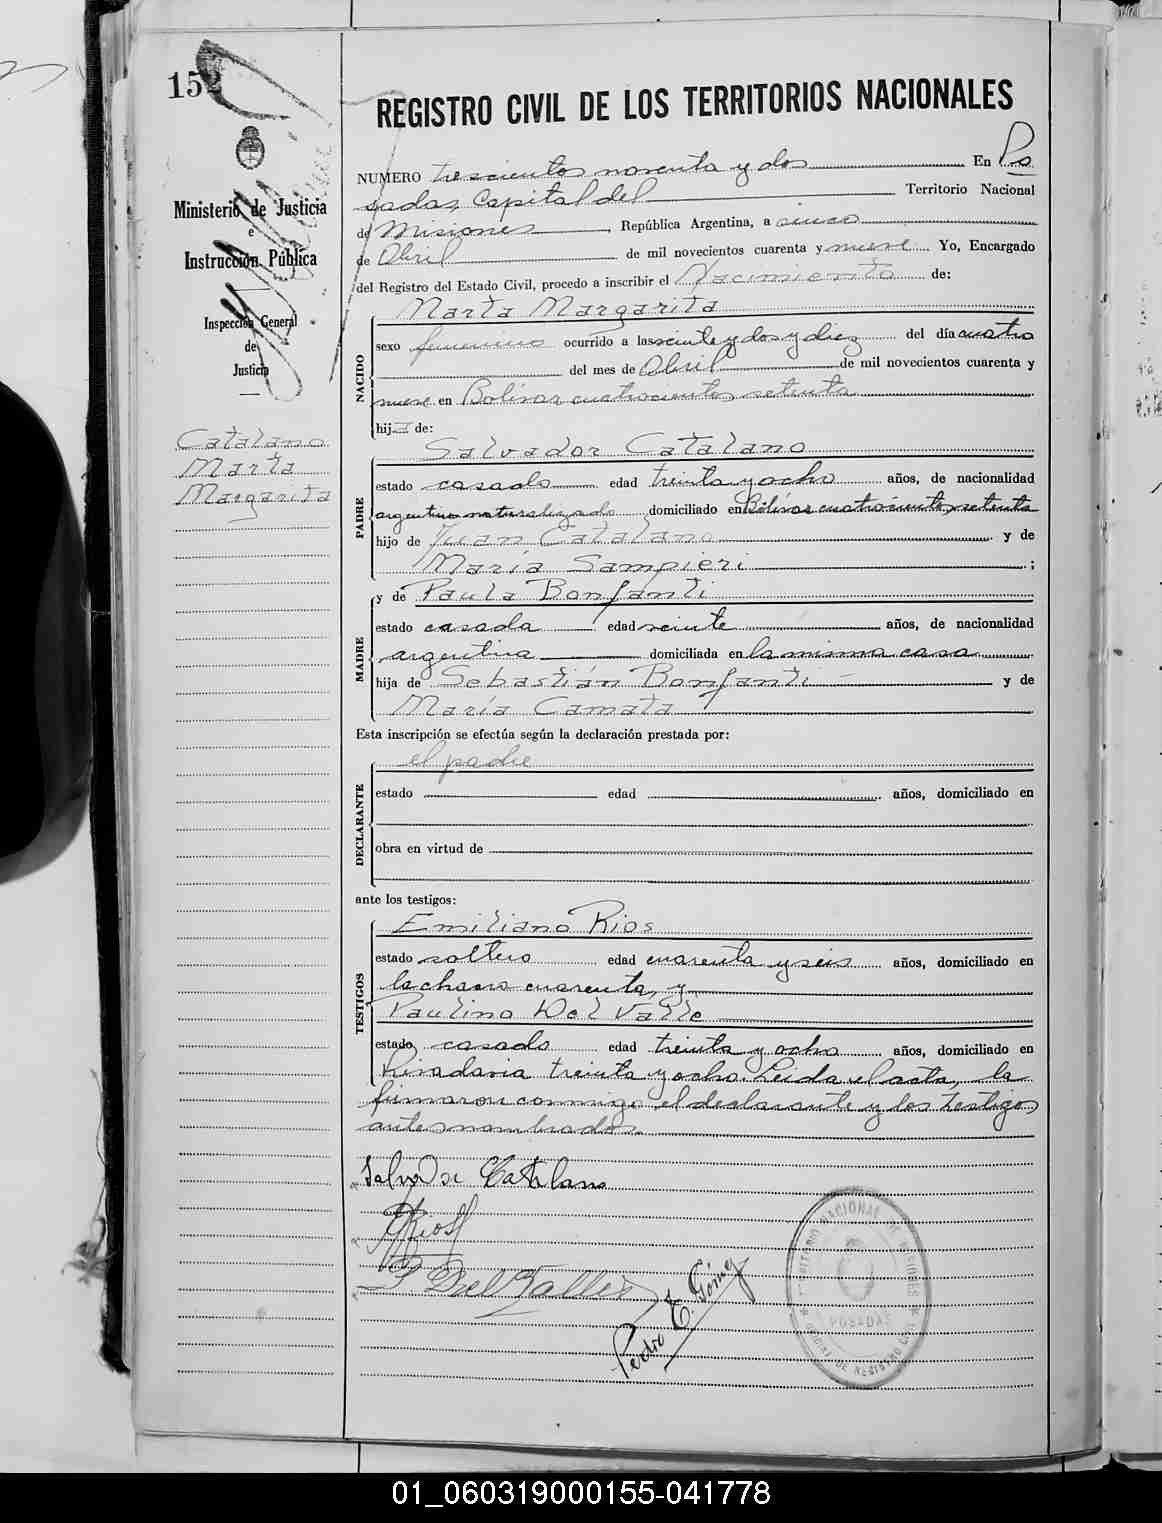 152
Ministerio de Justicia
e
Instrucción Pública
Inspección General
de
Justicia
Catalano
Marta
Margarita
REGISTRO CIVIL DE LOS TERRITORIOS NACIONALES
NUMERO trescientos noventa y dos En Po
sadas, Capital del Territorio Nacional
de Misiones, República Argentina, a cinco
de Abril de mil novecientos cuarenta y nueve Yo, Encargado
del Registro del Estado Civil, procedo a inscribir el Nacimiento de:
NACIDO
Marta Margarita
sexo femenino ocurrido a las veinte y dos y diez del día cuatro
del mes de Abril de mil novecientos cuarenta y
nueve en Bolívar cuatrocientos setenta
hija de:
PADRE
Salvador Catalano
estado casado edad treinta y ocho años, de nacionalidad
argentino naturalizado domiciliado en Bolívar cuatrocientos setenta
hijo de Juan Catalano y de
María Sampieri ;
MADRE
y de Paula Bonfanti
estado casada edad veinte años, de nacionalidad
argentina domiciliada en la misma casa
hija de Sebastián Bonfanti y de
María Camata
Esta inscripción se efectúa según la declaración prestada por:
DECLARANTE
el padre
estado edad años, domiciliado en
obra en virtud de
ante los testigos:
TESTIGOS
Emiliano Rios
estado soltero edad cuarenta y seis años, domiciliado en
la chacra cuarenta, y
Paulino Del Valle
estado casado edad treinta y ocho años, domiciliado en
Rivadavia treinta y ocho. Leida el acta, la
firmaron conmigo el declarante y los testigos
antes nombrados.
Salvador Catalano
ERios
P. Del Valle
Pedro E. Gómez
TERRITORIO NACIONAL DE MISIONES
POSADAS
01_060319000155-041778